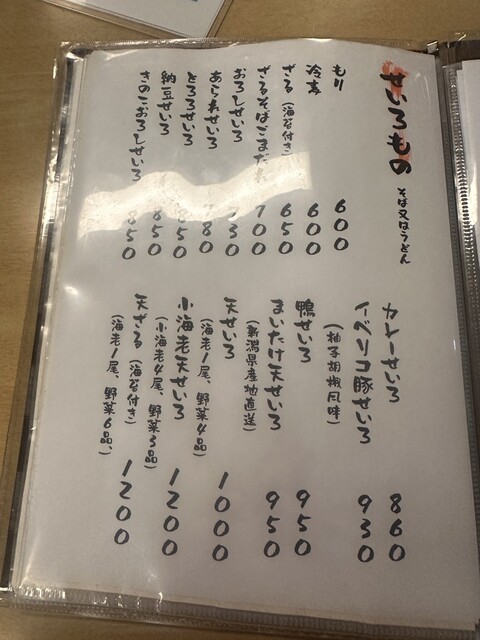 せいろもの そば又はうどん
もり 600
冷麦 600
ざる(海苔付き) 650
ざるそばごまだれ 700
おろしせいろ 730
あられせいろ 780
とろろせいろ 850
納豆せいろ 850
きのこおろしせいろ 850
カレーせいろ 860
イベリコ豚せいろ 930
(柚子胡椒風味)
鴨せいろ 950
まいたけ天せいろ 950
(新潟県産地直送)
天せいろ 1000
(海老1尾、野菜4品)
小海老天せいろ 1200
(小海老4尾、野菜3品)
天ざる(海苔付き) 1200
(海老1尾、野菜6品、)